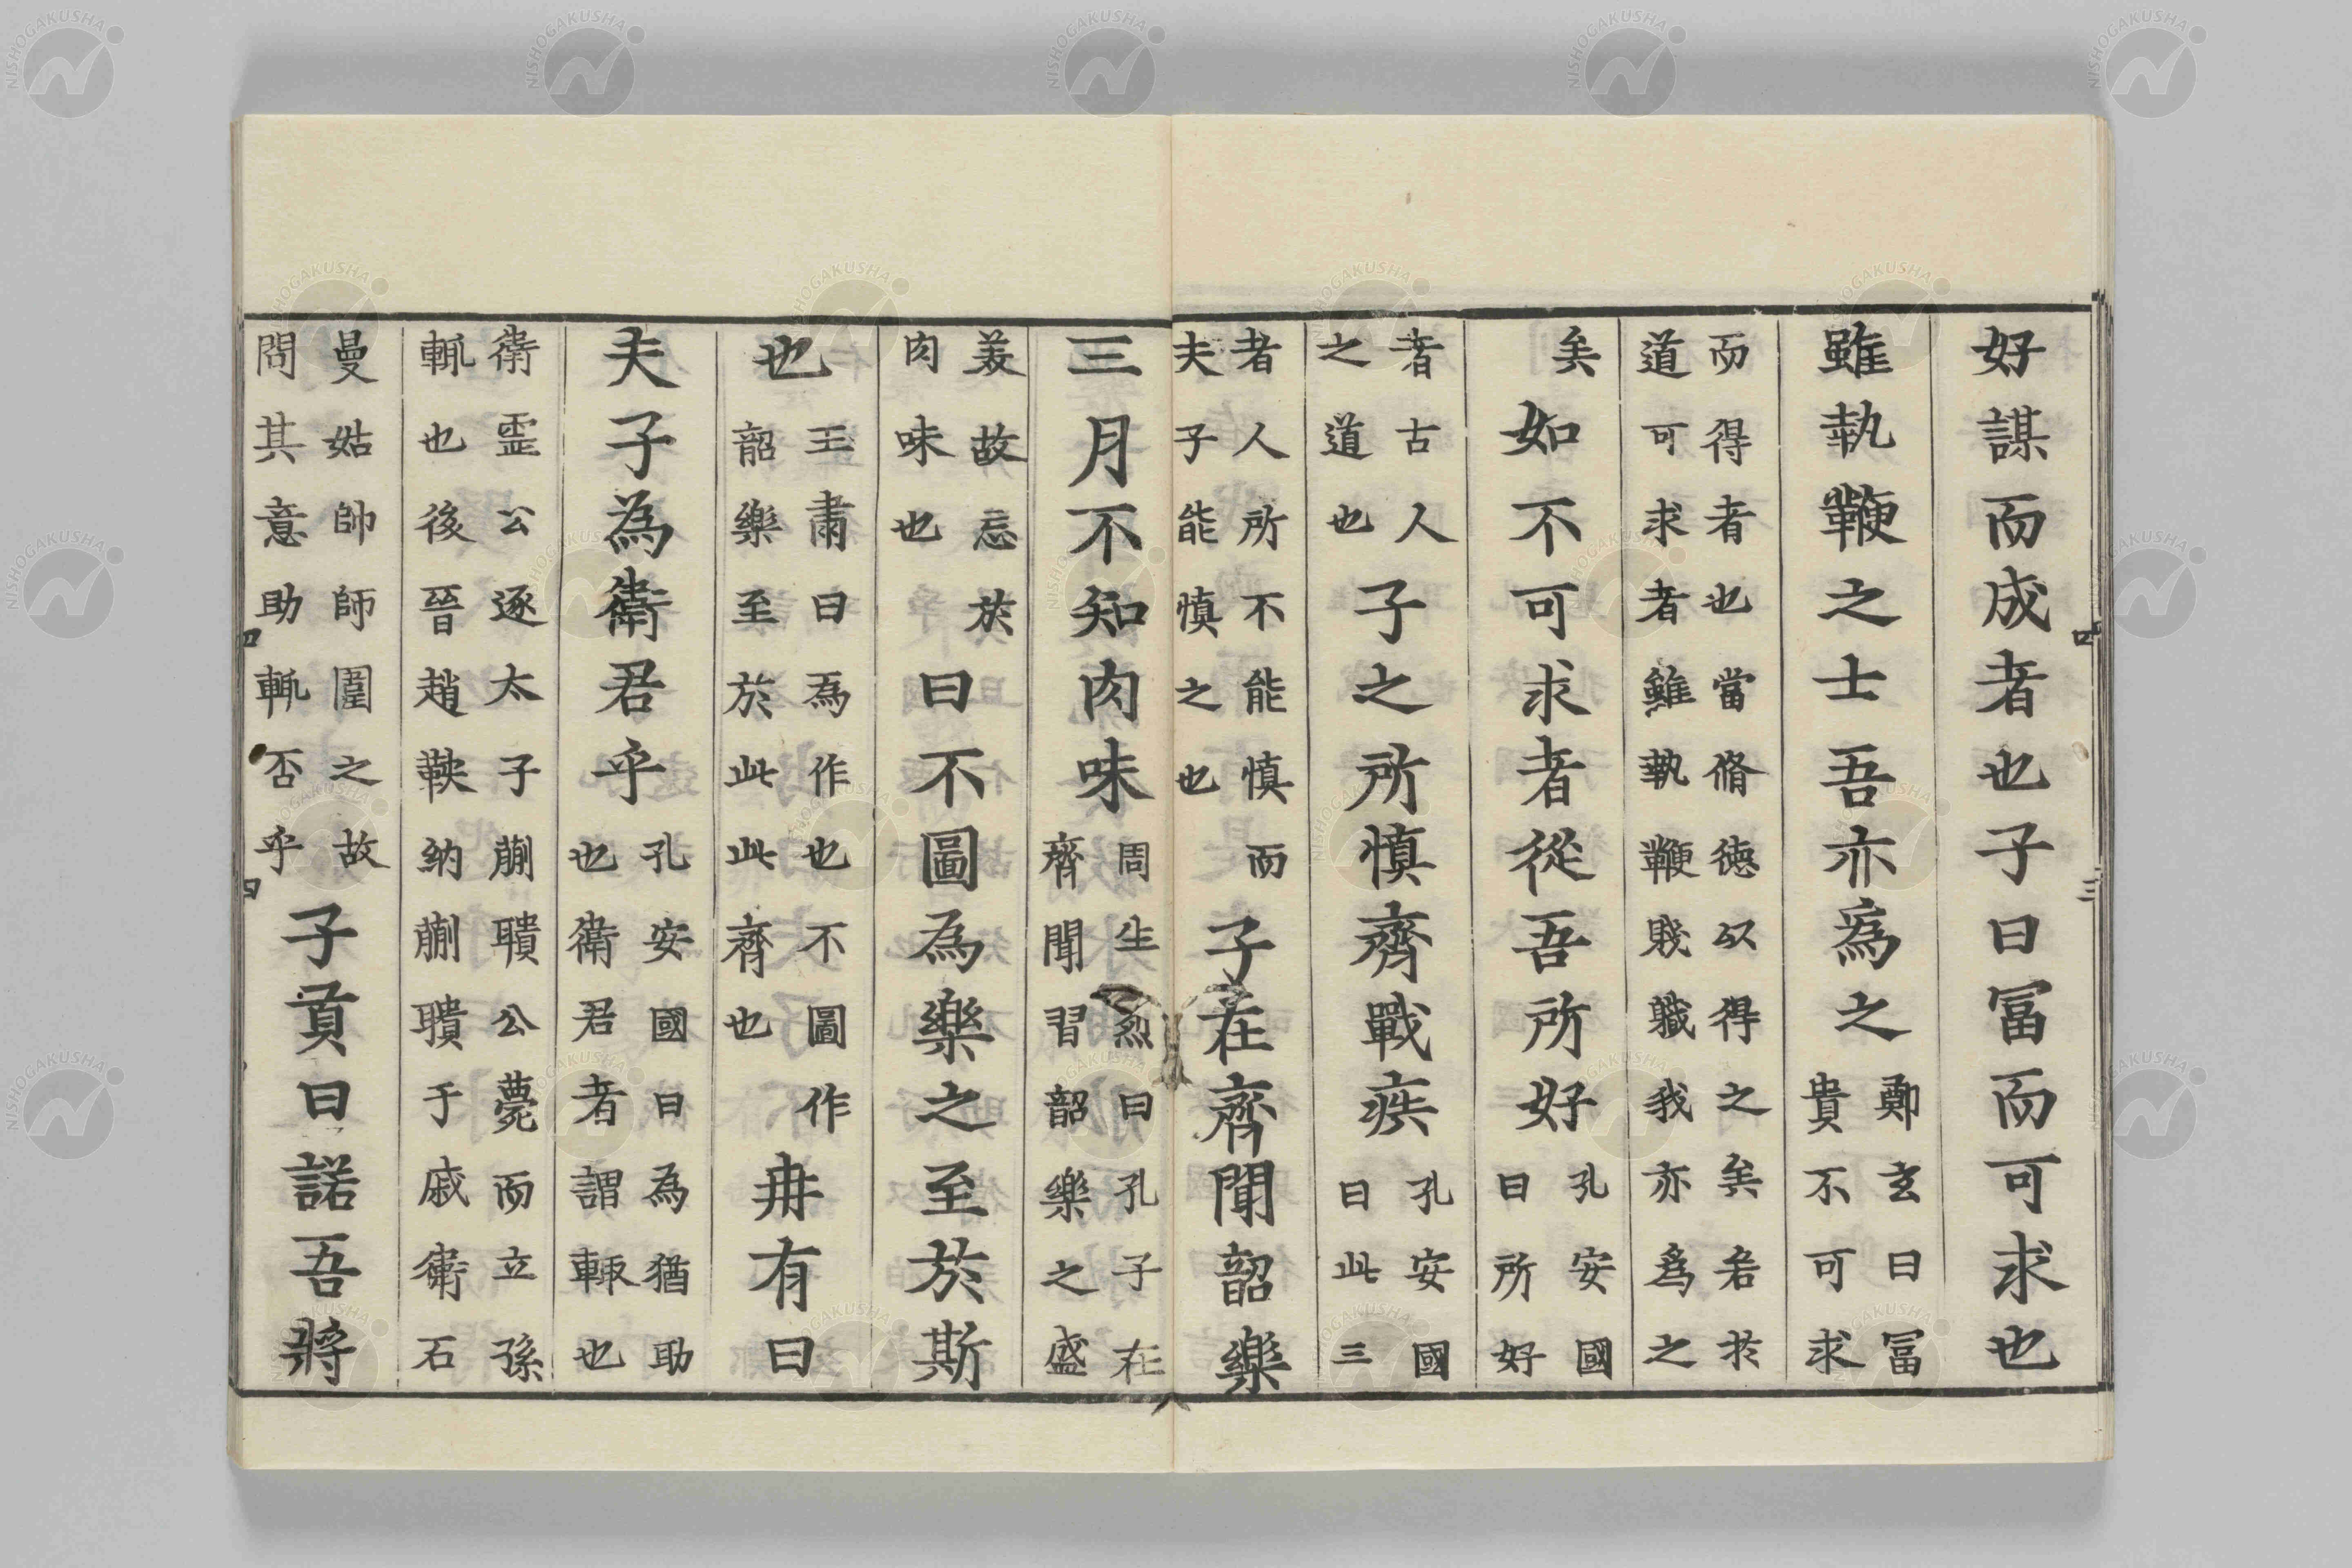 好謀而成者也子曰冨而可求也
雖執鞭之士吾亦為之
鄭玄曰冨
貴不可求
而得者也當脩德以得之矣若於
道可求者雖執鞭賤職我亦爲之
矣
如不可求者從吾所好
孔安國
曰所好
者古人
之道也
子之所慎齊戰疾
孔安國
曰此三
者人所不能慎而
夫子能慎之也
子在齊聞韶樂
三月不知肉味
周生烈曰孔子在
齊聞習韶樂之盛
美故忘於
肉味也
曰不圖為樂之至於斯
也
王肅曰為作也不圖作
韶樂至於此此齊也
冉有曰
夫子為衛君乎
孔安國曰為猶助
也衛君者謂輙也
衛霊公逐太子蒯聵公薨而立孫
輒也後晉趙鞅納蒯聵于戚衛石
曼姑帥師圍之故
問其意助輒否乎
子貢曰諾吾將
四
三
四
四
NISHOGAKUSHA